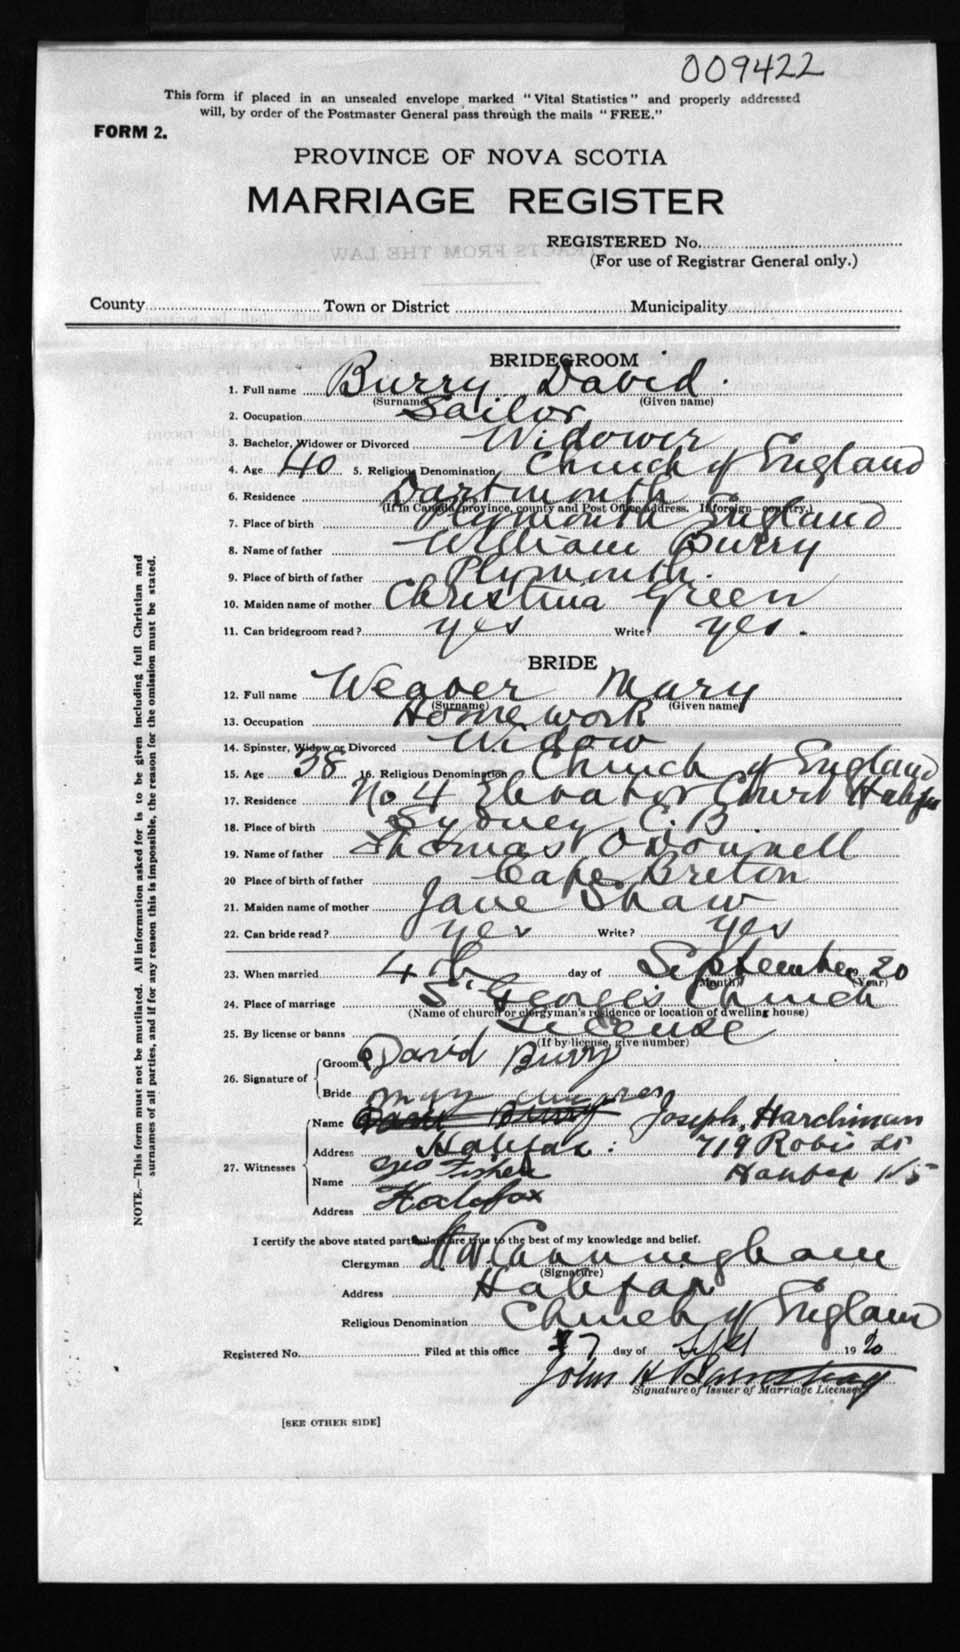 009422
This form if placed in an unsealed envelope marked "Vital Statistics" and properly addressed
will, by order of the Postmaster General pass through the mails "FREE."
FORM 2.
PROVINCE OF NOVA SCOTIA
MARRIAGE REGISTER
REGISTERED No.
(For use of Registrar General only.)
County Town or District Municipality
BRIDEGROOM
1. Full name Burry David
(Surname) (Given name)
2. Occupation Sailor
3. Bachelor, Widower or Divorced Widower
4. Age 40 5. Religious Denomination Church of England
6. Residence Dartmouth
(If in Canada, province, county and Post Office address. If foreign—country.)
7. Place of birth Plymouth England
8. Name of father William Burry
9. Place of birth of father Plymouth.
10. Maiden name of mother Christina Green
11. Can bridegroom read? yes Write? yes.
BRIDE
12. Full name Weaver Mary
(Surname) (Given name)
13. Occupation Home work
14. Spinster, Widow or Divorced Widow
15. Age 38 16. Religious Denomination Church of England
17. Residence No 4 Elevator Court Halifax
18. Place of birth Sydney C.B
19. Name of father Thomas O'Donnell
20 Place of birth of father Cape Breton
21. Maiden name of mother Jane Shaw
22. Can bride read? yes Write? yes
23. When married 4th day of September 20
(Month) (Year)
24. Place of marriage St George's Church
(Name of church or clergyman's residence or location of dwelling house)
25. By license or banns License
(If by license, give number)
26. Signature of Groom David Burry
Bride Mary
27. Witnesses Name David Burry Joseph Hardiman
Address Halifax. 719 Robie St
Name Geo Fisher Halifax NS
Address Halifax
I certify the above stated particulars are true to the best of my knowledge and belief.
Clergyman Cunningham
(Signature)
Address Halifax
Religious Denomination Church of England
Registered No. Filed at this office 7 day of Sept 1920
John H
Signature of Issuer of Marriage Licenses
[SEE OTHER SIDE]
NOTE.—This form must not be mutilated. All information asked for is to be given including full Christian and
surnames of all parties, and if for any reason this is impossible, the reason for the omission must be stated.